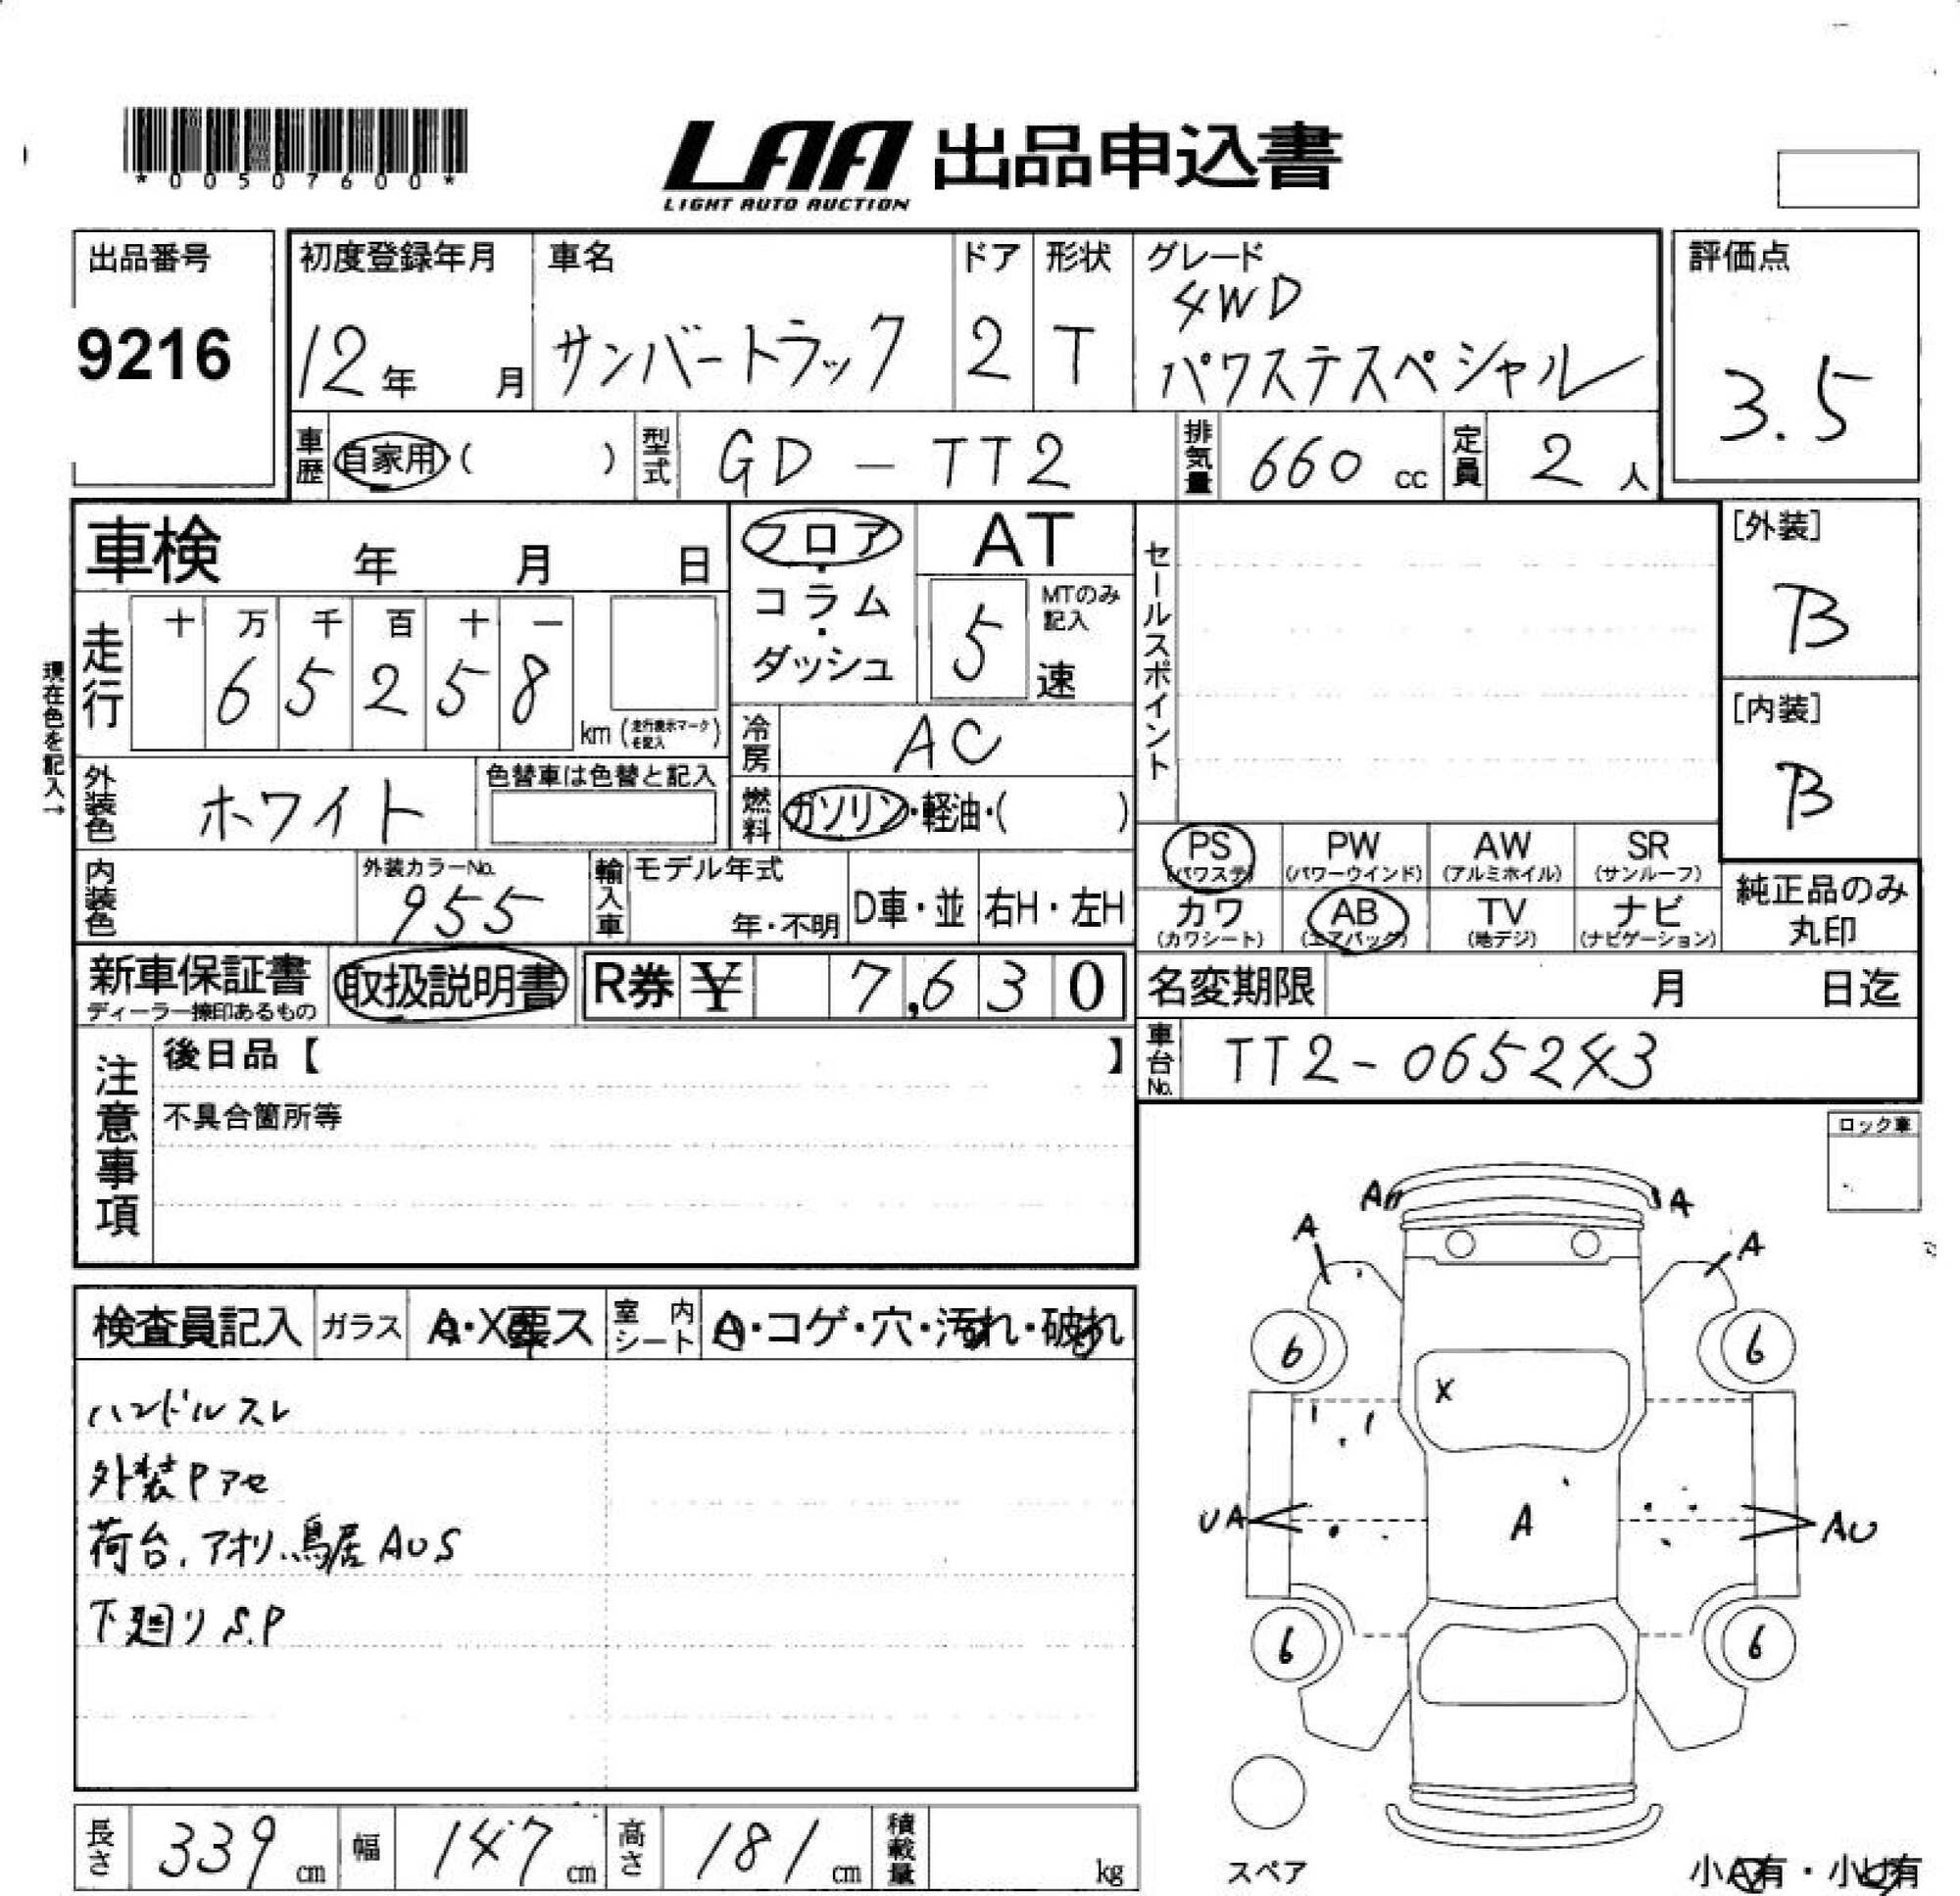 *00507600*
LAA 出品申込書
LIGHT AUTO AUCTION
出品番号
9216
初度登録年月
12年 月
車名
サンバートラック
ドア
2
形状
T
グレード
4WD
パワステスペシャル
評価点
3.5
車歴 自家用・( )
型式 GD-TT2
排気量 660 cc
定員 2 人
車検 年 月 日
フロア・コラム・ダッシュ
AT
MTのみ記入
5 速
セールスポイント
[外装]
B
[内装]
B
現在色を記入→
走行 十 万 千 百 十 一
6 5 2 5 8
km (走行表示マークを記入)
冷房 AC
外装色 ホワイト
色替車は色替と記入
燃料 ガソリン・軽油・( )
内装色
外装カラーNo.
955
輸入車 モデル年式
年・不明
D車・並
右H・左H
PS (パワステ)
PW (パワーウインド)
AW (アルミホイル)
SR (サンルーフ)
カワ (カワシート)
AB (エアバッグ)
TV (地デジ)
ナビ (ナビゲーション)
純正品のみ
丸印
新車保証書
ディーラー捺印あるもの
取扱説明書
R券 ¥ 7,630
名変期限 月 日迄
車台No. TT2-065243
注意事項
後日品【 】
不具合箇所等
ロック車
検査員記入
ガラス A・X要ス
室内シート A・コゲ・穴・汚れ・破れ
ハンドルスレ
外装Pアセ
荷台.アオリ.鳥居AUS
下廻りS.P
A A
A A
6 6
X
UA A AU
6 6
長さ 339 cm
幅 147 cm
高さ 181 cm
積載量 kg
スペア
小A有・小U有